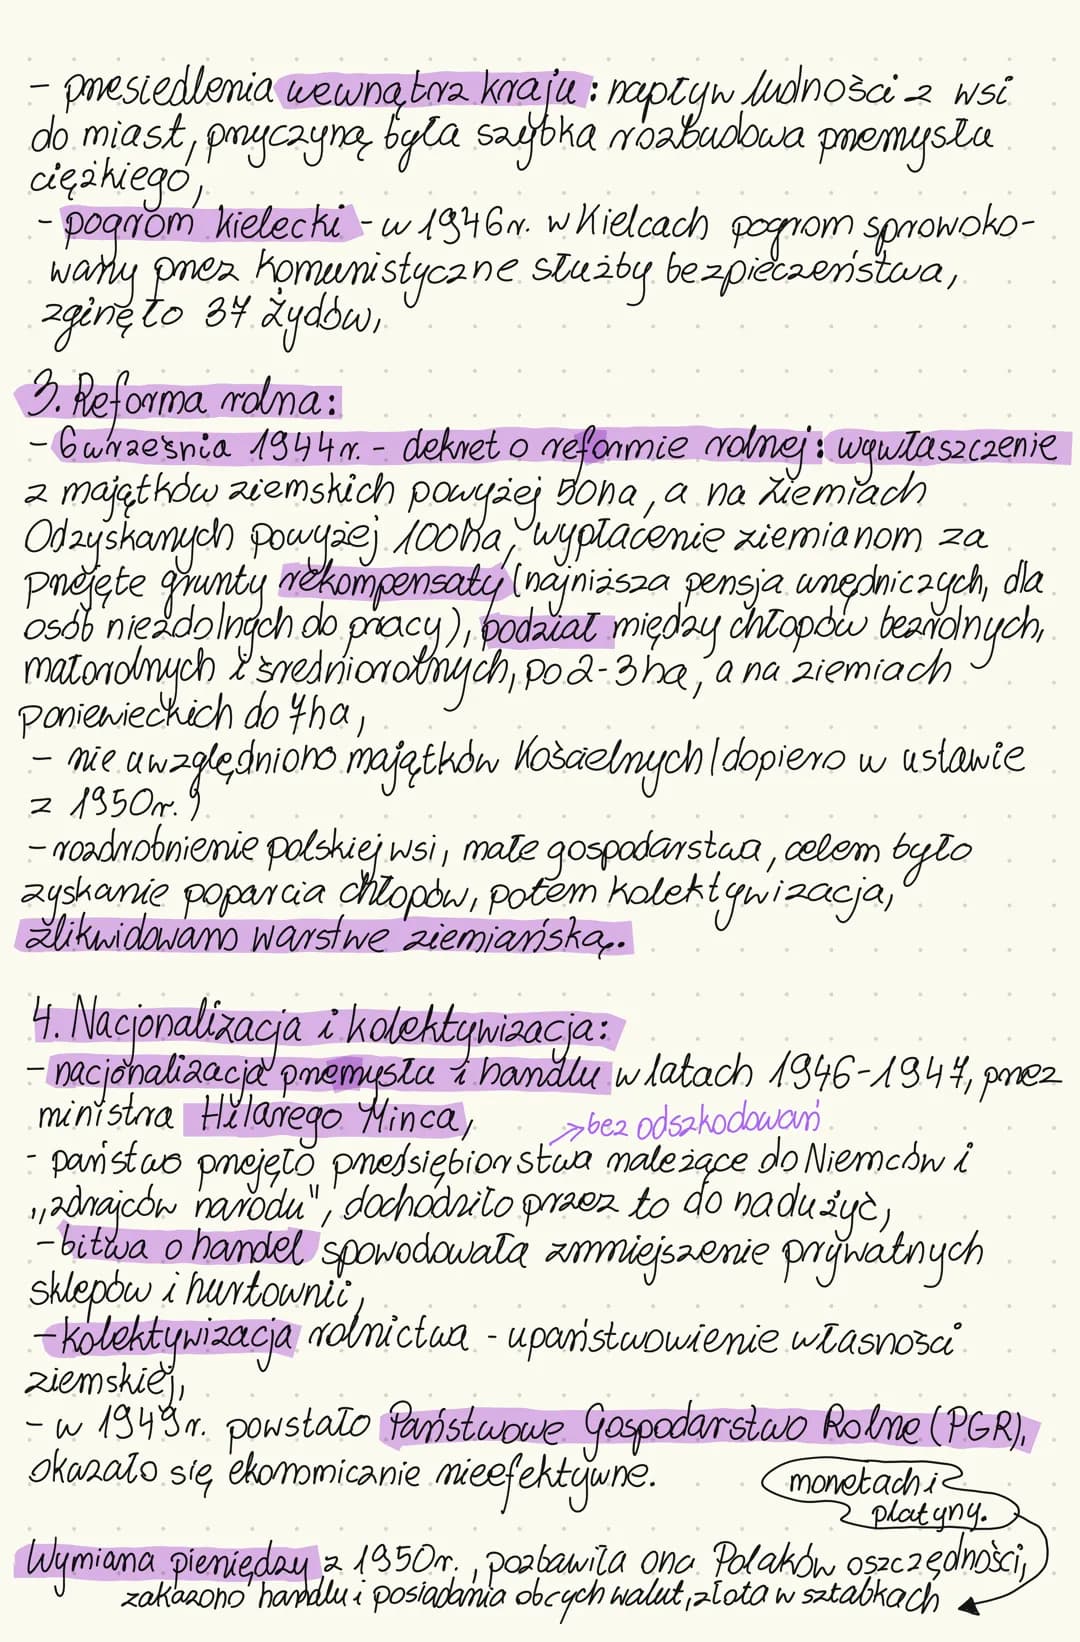 - przesiedlenia wewnątrz kraju: napływ ludności z wsi
do miast, przyczyną była szybka rozbudowa przemysłu
ciężkiego,
- pogrom kielecki - w 1946r. w Kielcach pogrom sprowoko-
wany przez komunistyczne służby bezpieczeństwa,
zginęło 37 Żydów,
3. Reforma rolna:
- 6 września 1944r. - dekret o reformie rolnej: wywłaszczenie
z majątków ziemskich powyżej 50ha, a na Ziemiach
Odzyskanych powyżej 100ha, wypłacenie ziemianom za
przejęte grunty rekompensaty (najniższa pensja urzędniczych, dla
osób niezdolnych do pracy), podział między chłopów bezrolnych,
małorolnych i średniorolnych, po 2-3 ha, a na ziemiach
poniewieckich do 7ha,
- nie uwzględniono majątków kościelnych (dopiero w ustawie
z 1950r.)
- rozdrobnienie polskiej wsi, małe gospodarstwa, celem było
zyskanie poparcia chłopów, potem kolektywizacja,
zlikwidowano warstwe ziemiańską.
4. Nacjonalizacja i kolektywizacja:
- nacjonalizacja przemysłu i handlu w latach 1946-1947, przez
ministra Hilarego Minca,
→ bez odszkodowań
- państwo przejęło przedsiębiorstwa należące do Niemców i
„zdrajców narodu", dochodziło przez to do nadużyć,
- bitwa o handel spowodowała zmniejszenie prywatnych
sklepów i hurtownii,
- kolektywizacja rolnictwa - upaństwowienie własności
ziemskiej,
- w 1949r. powstało Państwowe Gospodarstwo Rolne (PGR),
okazało się ekonomicznie nieefektywne.
monetach i
platyny.
Wymiana pieniędzy z 1950r., pozbawiła ona Polaków oszczędności,
zakazono handlu i posiadania obcych walut, złota w sztabkach